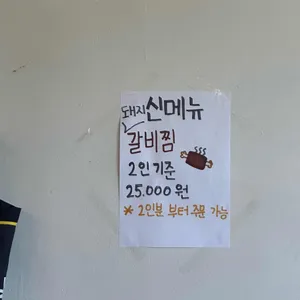 신메뉴
돼지
갈비찜
2인기준
25.000원
* 2인분 부터 주문 가능